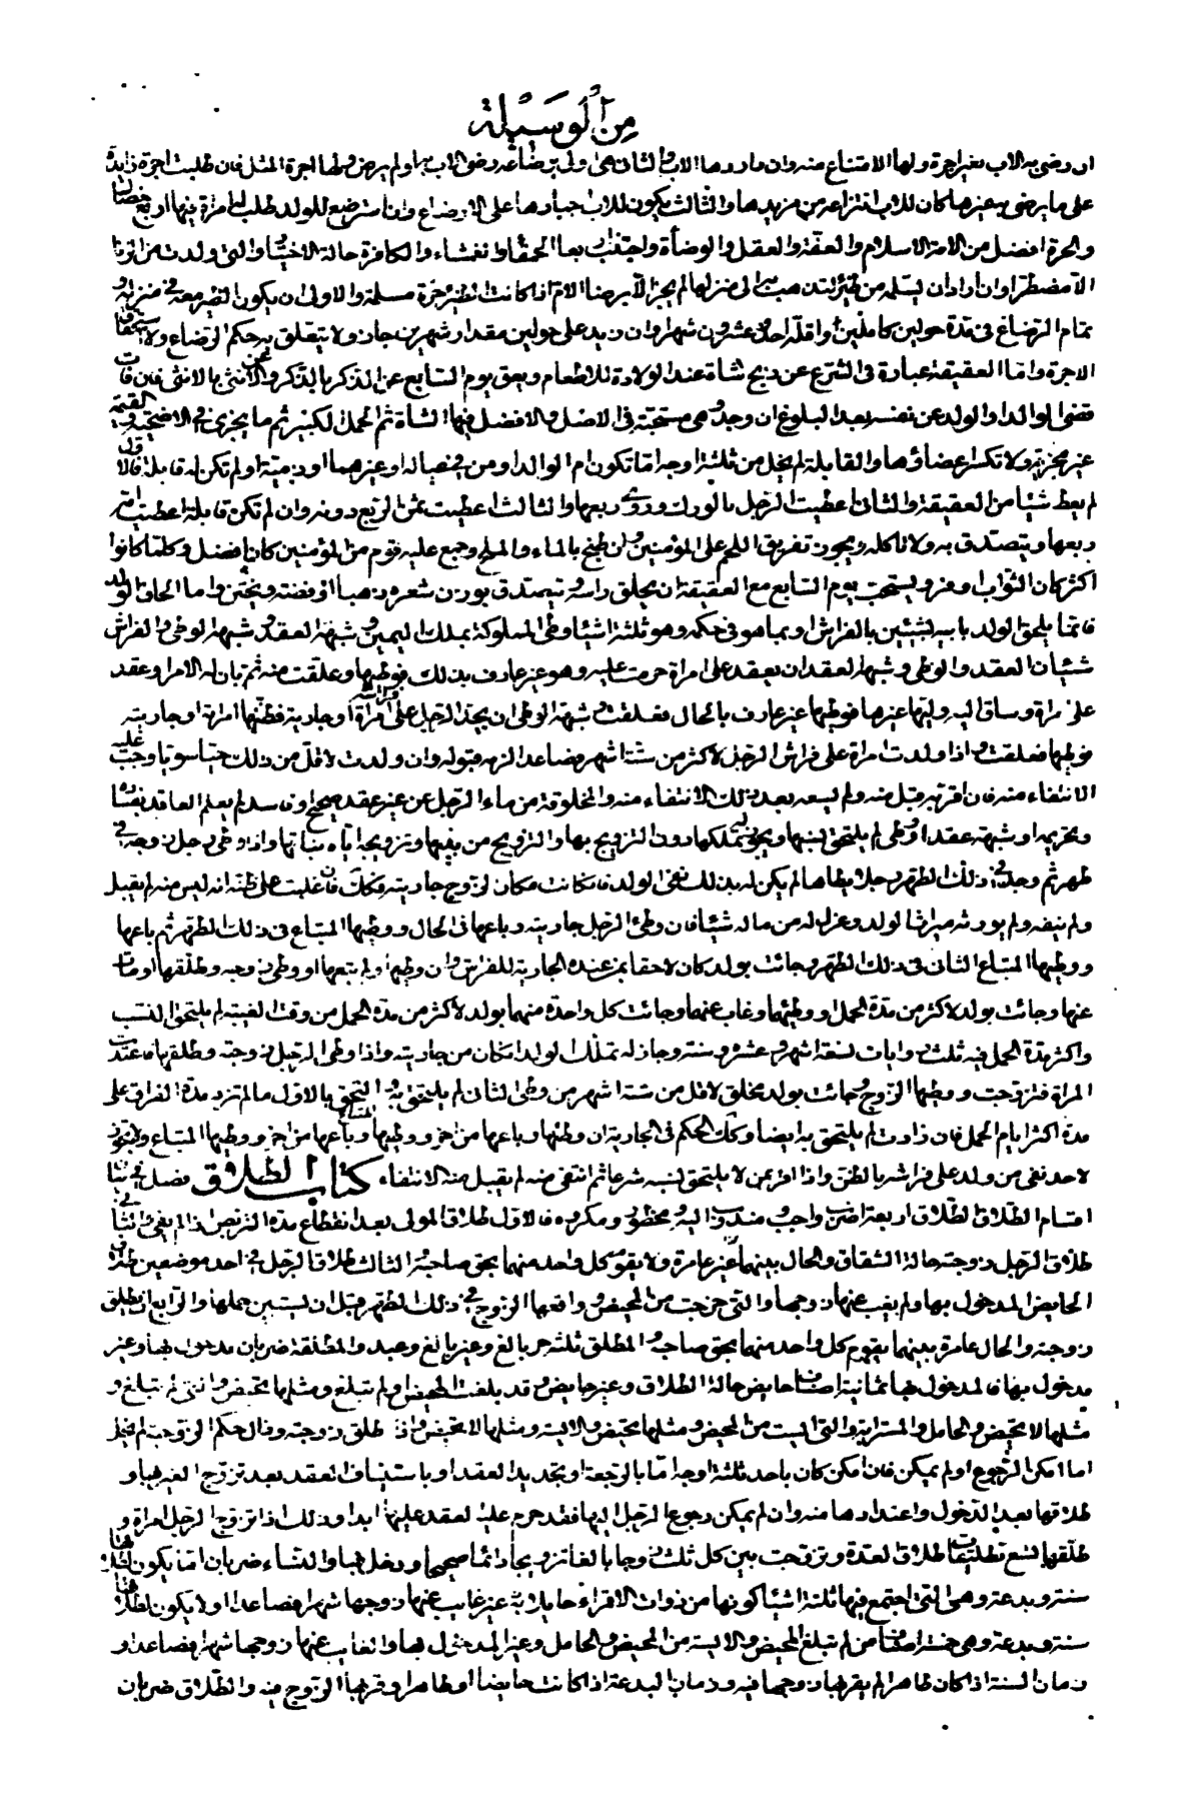 من الوسيلة
ان رضى به الاب بغير اجرة ولها الامتناع منه وان ما ردها الاب والثان هى اولى برضاعه رضى الاب بها ولم يرض ولها اجرة المثل فان طلبت اجرة زايدة
على ما يرضى به غيرها كان للاب انتزاعه من يدها والثالث يكون للاب جبارها على الارضاع وان استرضع للولد طلب امراة فيها اربع خصال
والحرة افضل من الامة الاسلام والعفة والعقل والوضأة واجتناب الحمقاء والكافرة حالة الاختيار والتى ولدت من الزنا
الا مضطرا وان اراد ان يسلمه من الى منزلها لم يجز الا برضا الام اذا كانت الظئر حرة مسلمة والاولى ان يكون الظئر معه فى منزله و
تمام الرضاع فى مدة حولين كاملين واقله احد وعشرون شهرا وان زيد على حولين مقدار شهرين جاز ولا يتعلق به حكم الرضاع ولا استحقاق
الاجرة واما العقيقة عبارة فى الشرع عن ذبح شاة عند الولادة للاطعام ويعق يوم السابع عن الذكر بالذكر وعن الانثى بالانثى فان فات
قضى الوالد او الولد عن نفسه بعد البلوغ ان وجد وهى مستحبة فى الاصل والافضل فيها الشاة ثم الحمل الكبير ثم ما يجزى فى الاضحية والقيمة
غير مجزية ولا تكسر اعضاؤها والقابلة لم يخل من ثلثة اوجه اما تكون ام الوالد او من فى عياله او غيرهما او ذمية او لم تكن له قابلة فالاول
لم يعط شيئا من العقيقة والثانى اعطيت الرجل بالورك وروى ربعها والثالث اعطيت ثمن الربع دونه وان لم تكن قابلة اعطيت امه
ربعها ويتصدق به ولا تاكله ويجوز تفريق اللحم على المؤمنين وان طبخ بالماء والملح وجمع عليه قوم من المؤمنين كان افضل وكلما كانوا
اكثر كان الثواب اوفر ويستحب يوم السابع مع العقيقة ان يحلق راسه ويتصدق بوزن شعره ذهبا او فضة ويختن واما الحاق الولد
فانما يلحق الولد بابيه لشيئين بالفراش او بما هو فى حكمه وهو ثلثة اشياء وطئ المملوكة بملك اليمين وشبهة العقد وشبهة الوطى والفراش
شيئان العقد والوطى وشبهة العقد ان يعقد على امراة حرمت عليه وهو غير عارف بذلك فوطيها وعلقت منه ثم بان له الامر او عقد
على امراة وساق اليه وليها غيرها فوطيها غير عارف بالحال فعلقت وشبهة الوطى ان يجد الرجل على فراشه امراة او جارية فظنها امراته او جاريته
فوطيها فعلقت واذا ولدت امراة على فراش الرجل لاكثر من ستة اشهر فصاعدا لزمه قبوله وان ولدت لاقل من ذلك حيا سويا وجب عليه
الانتفاء منه فان اقر به قبل منه ولم يسعه بعد ذلك الانتفاء منه والمخلوقة من ماء الرجل عن غير عقد صحيح او فاسد لم يعلم العاقد بفساده
وتحريمه او شبهة عقد او وطى لم يلتحق نسبها ويجوز له تملكها دون التزويج بها والتزويج من بنيها وتزويجها آباه بناتها واذا وطى رجل زوجته فى
طهر ثم وجد فى ذلك الطهر رجلا يطاها لم يكن له بذلك نفى الولد فان كانت مكان الزوجة جاريته فكذلك فان غلبت على ظنه انه ليس منه لم يقبل
ولم ينفه ولم يورثه ميراث الولد وعزل له من ماله شيئا فان وطئ الرجل جاريته وباعها فى الحال ووطيها المبتاع فى ذلك الطهر ثم باعها
ووطيها المبتاع الثانى فى ذلك الطهر وجائت بولد كان لاحقا بمن عنده الجارية للفراش وان وطيها ولم يبعها او وطى زوجته وطلقها او مات
عنها وجائت بولد لاكثر من مدة الحمل او وطئهما وغاب عنهما وجائت كل واحدة منهما بولد لاكثر من مدة الحمل من وقت الغيبة لم يلتحق النسب
واكثر مدة الحمل فيه ثلث روايات تسعة اشهر وعشرة وسنة وجاز له تملك الولد ان كان من جاريته واذا وطى الرجل زوجته وطلقها فاعتدت
المراة فتزوجت ووطيها الزوج وجائت بولد مخلق لاقل من ستة اشهر من وطى الثانى لم يلتحق به والتحق بالاول ما لم تزد مدة الفراق على
مدة اكثر ايام الحمل فان زادت لم يلتحق به ايضا وكذلك الحكم فى الجارية ان وطئها وباعها من اخر ووطيها المبتاع وباعها من اخر ووطيها المبتاع ولا يجوز
لاحد نفى من ولد على فراشه بالظن واذا اقر بمن لا يلتحق نسبه شرعا ثم انتفى منه لم يقبل منه الانتفاء كتاب الطلاق فصل فى بيان
اقسام الطلاق الطلاق اربعة اضرب واجب ومندوب اليه ومحظور ومكروه فالاول طلاق المولى بعد انقطاع مدة التربص اذا لم يفئ والثانى
طلاق الرجل زوجته حالة الشقاق والحال بينهما غير عامرة ولا يقوم كل واحد منهما بحق صاحبه والثالث طلاق الرجل فى احد موضعين طلاق
الحايض المدخول بها ولم يغب عنها زوجها والتى خرجت من الحيض وواقعها الزوج فى ذلك الطهر قبل ان يستبين حملها والرابع ان يطلق
زوجته والحال عامرة بينهما يقوم كل واحد منهما بحق صاحبه والمطلق ثلثة حر بالغ وغير بالغ وعبد والمطلقة ضربان مدخول بها وغير
مدخول بها فالمدخول بها ثمانية اصناف حايض حالة الطلاق وغير حايض وقد بلغت المحيض او لم تبلغ ومثلها تحيض والتى لم تبلغ و
مثلها لا تحيض والحامل والمسترابة والتى ايست من المحيض ومثلها تحيض والايسة ومثلها لا تحيض واذا طلق زوجته وزال حكم الزوجية لم يخل
اما امكن الرجوع او لم يمكن فان امكن كان باحد ثلثة اوجه اما بالرجعة او بتجديد العقد او باستيناف العقد بعد تزوج الغير بها و
طلاقها بعد الدخول واعتدادها منه وان لم يمكن رجوع الرجل اليها فقد حرم عليه العقد عليها ابدا وذلك اذا تزوج الرجل امراة و
طلقها تسع تطليقات طلاق العدة وتزوجت بين كل ثلث زوجا بالغا تزويجا دائما صحيحا ودخل بها والنساء ضربان اما يكون لطلاقها
سنة وبدعة وهى التى اجتمع فيها ثلثة اشياء كونها من ذوات الاقراء حايلا غير غايب عنها زوجها شهرا فصاعدا او لا يكون لطلاقها
سنة وبدعة وهى خمسة اصناف من لم تبلغ المحيض والايسة من المحيض والحامل وغير المدخول بها والغايب عنها زوجها شهرا فصاعدا و
زمان السنة اذا كان طاهرا لم يقربها زوجها فيه وزمان البدعة اذا كانت حايضا او طاهرا وقربها الزوج فيه والطلاق ضربان